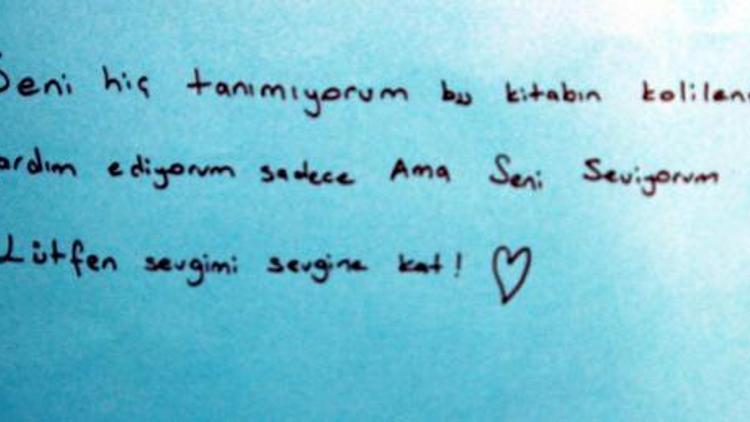 Seni hiç tanımıyorum bu kitabın kolilen
ardım ediyorum sadece Ama Seni Seviyorum
Lütfen sevgimi sevgine kat! ♡